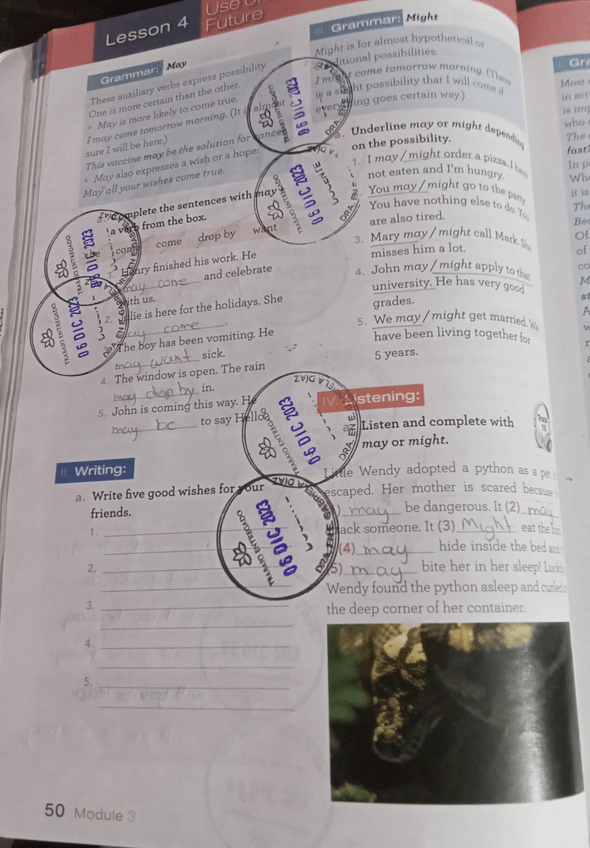 Lesson 4
Use of
Future
I. Grammar: May
These auxiliary verbs express possibility.
One is more certain than the other.
• May is more likely to come true.
I may come tomorrow morning. (It is almost
sure I will be here.)
This vaccine may be the solution for cancer.
• May also expresses a wish or a hope:
May all your wishes come true.
a. Complete the sentences with may
a verb from the box.
be come drop by want
1. Henry finished his work. He
may come and celebrate
with us.
2. is here for the holidays. She
may come.
3. The boy has been vomiting. He
may want sick.
4. The window is open. The rain
may drop by in.
5. John is coming this way. He
may be to say Hello.
II. Writing:
a. Write five good wishes for your
friends.
1.
2.
3.
4.
5.
50 Module 3
III. Grammar: Might
Might is for almost hypothetical or
conditional possibilities.
I might come tomorrow morning. (There
is a slight possibility that I will come if
everything goes certain way.)
a. Underline may or might depending
on the possibility.
1. I may / might order a pizza. I have
not eaten and I'm hungry.
2. You may / might go to the party.
You have nothing else to do. You
are also tired.
3. Mary may / might call Mark. She
misses him a lot.
4. John may / might apply to that
university. He has very good
grades.
5. We may / might get married. We
have been living together for
5 years.
IV. Listening:
a. Listen and complete with
may or might.
Track
Little Wendy adopted a python as a pet. It
escaped. Her mother is scared because
(1) may be dangerous. It (2) may
attack someone. It (3) Might eat the
(4) may hide inside the bed and
(5) may bite her in her sleep! Luckily
Wendy found the python asleep and curled
the deep corner of her container.
TRABAJO ENTREGADO
06 DIC 2023
TRABAJO ENTREGADO
06 DIC 2023
TRABAJO ENTREGADO
06 DIC 2023
TRABAJO ENTREGADO
06 DIC 2023
TRABAJO ENTREGADO
06 DIC 2023
TRABAJO ENTREGADO
06 DIC 2023
DRA. EN E. GABRIELA DIAZ